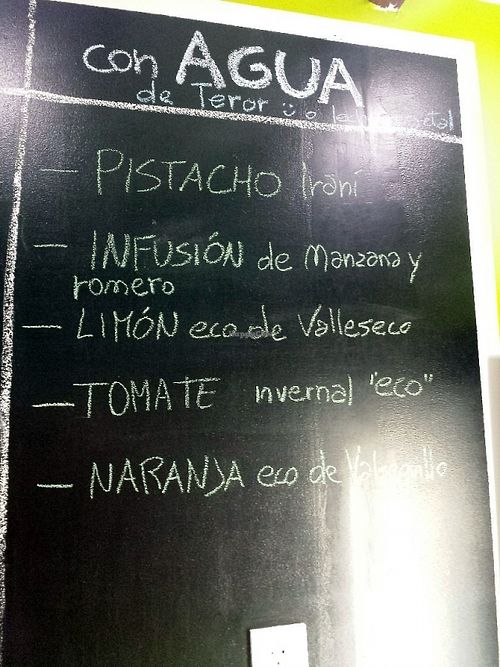 con AGUA
de Teror :) o leche vegetal
— PISTACHO Iraní
— INFUSIÓN de Manzana y
romero
— LIMÓN eco de Valleseco
— TOMATE invernal "eco"
— NARANJA eco de Valsequillo